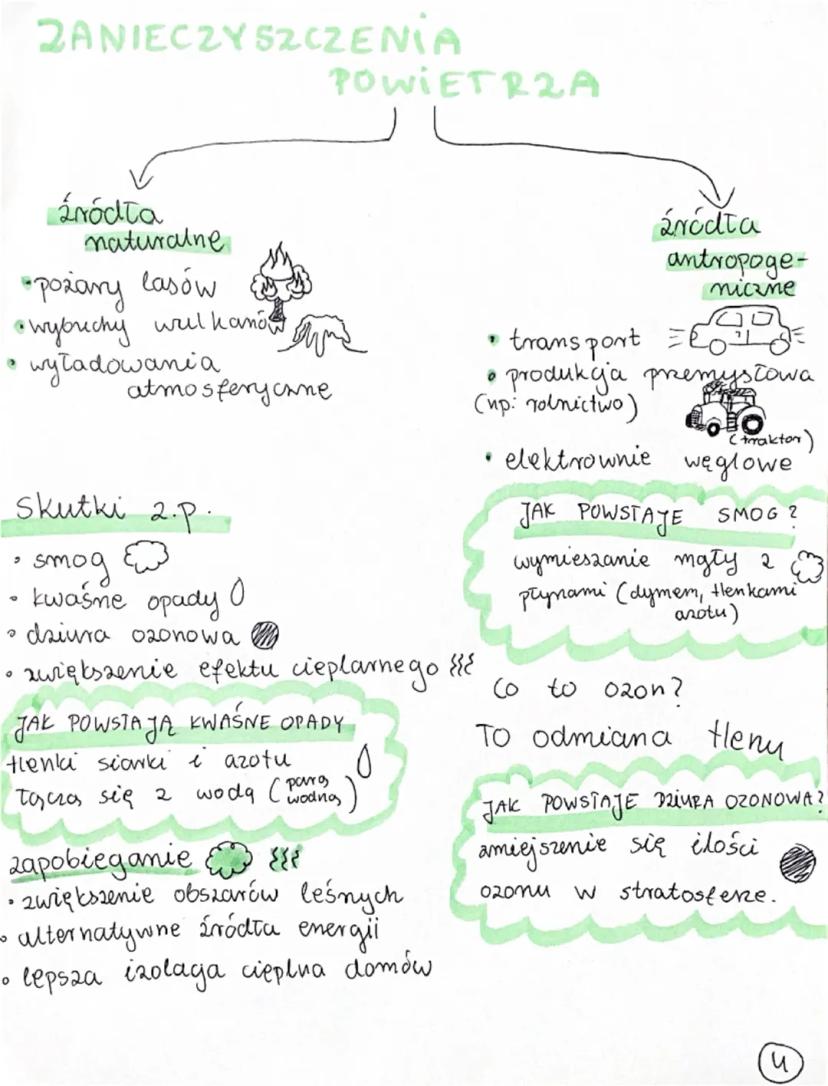 ZANIECZYSZCZENIA
POWIETRZA
źródła
naturalne
• pożary lasów
• wybuchy wulkanów
• wyładowania
atmosferyczne
źródła
antropoge-
niczne
• transport
• produkcja przemysłowa
(np: rolnictwo)
(traktor)
• elektrownie węglowe
Skutki z.p.
• smog
• kwaśne opady
• dziura ozonowa
• zwiększenie efektu cieplarnego
JAK POWSTAJĄ KWAŚNE OPADY
tlenki siarki i azotu
łączą się z wodą (parą
wodną)
zapobieganie
• zwiększenie obszarów leśnych
• alternatywne źródła energii
• lepsza izolacja cieplna domów
JAK POWSTAJE SMOG?
wymieszanie mgły z
płynami (dymem, tlenkami
azotu)
Co to ozon?
To odmiana tlenu
JAK POWSTAJE DZIURA OZONOWA?
zmiejszenie się ilości
ozonu w stratosferze.
4